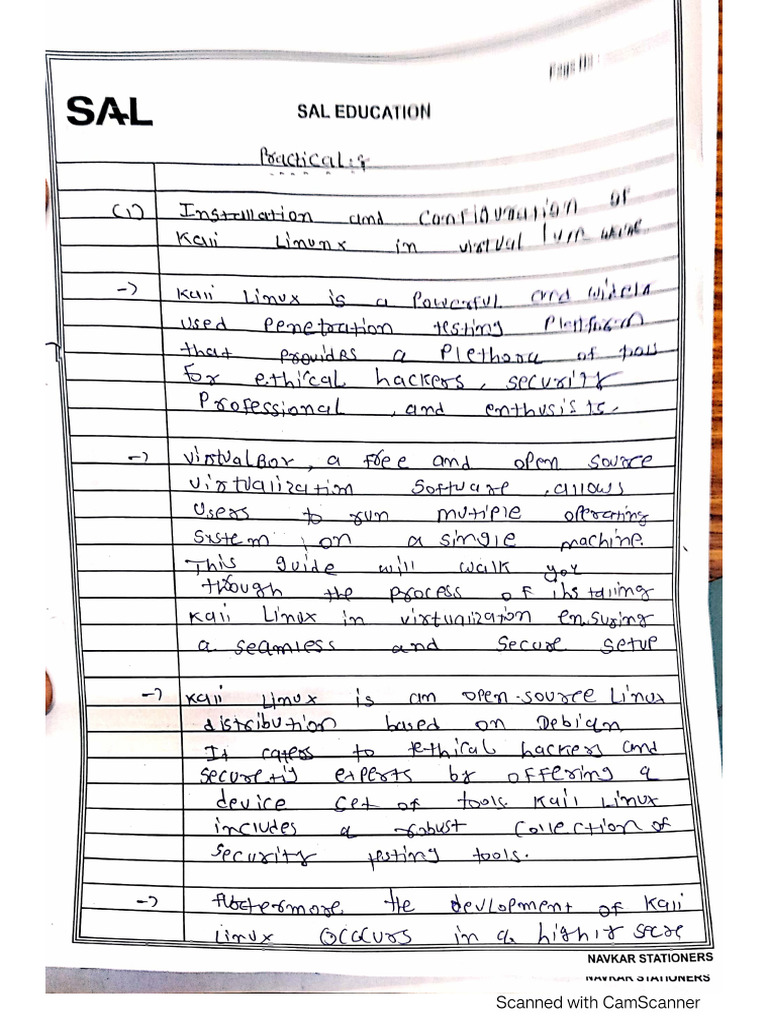 Page No :
SAL
SAL EDUCATION
Practical :-
(1) Installation and Configuration of
Kali Linunx in virtual
-> Kali Linux is a Powerful and widely
used penetration testing Platform
that provides a Plethora of
for ethical hackers, security
Professional , and enthusists.
-> VirtualBox, a free and open source
virtualization Software , allows
users to run mutiple operating
system , on a single machine.
This guide will walk you
though the process of installing
Kali Linux in virtualization ensuring
a seamless and secure setup
-> Kali Linux is an open-source Linux
distribution based on Debian.
It caters to ethical hackers and
security experts by offering a
device set of tools. Kali Linux
includes a robust Collection of
security testing tools.
-> the devlopment of Kali
Linux occurs in a highly
NAVKAR STATIONERS
NAVKAR STATIONERS
Scanned with CamScanner